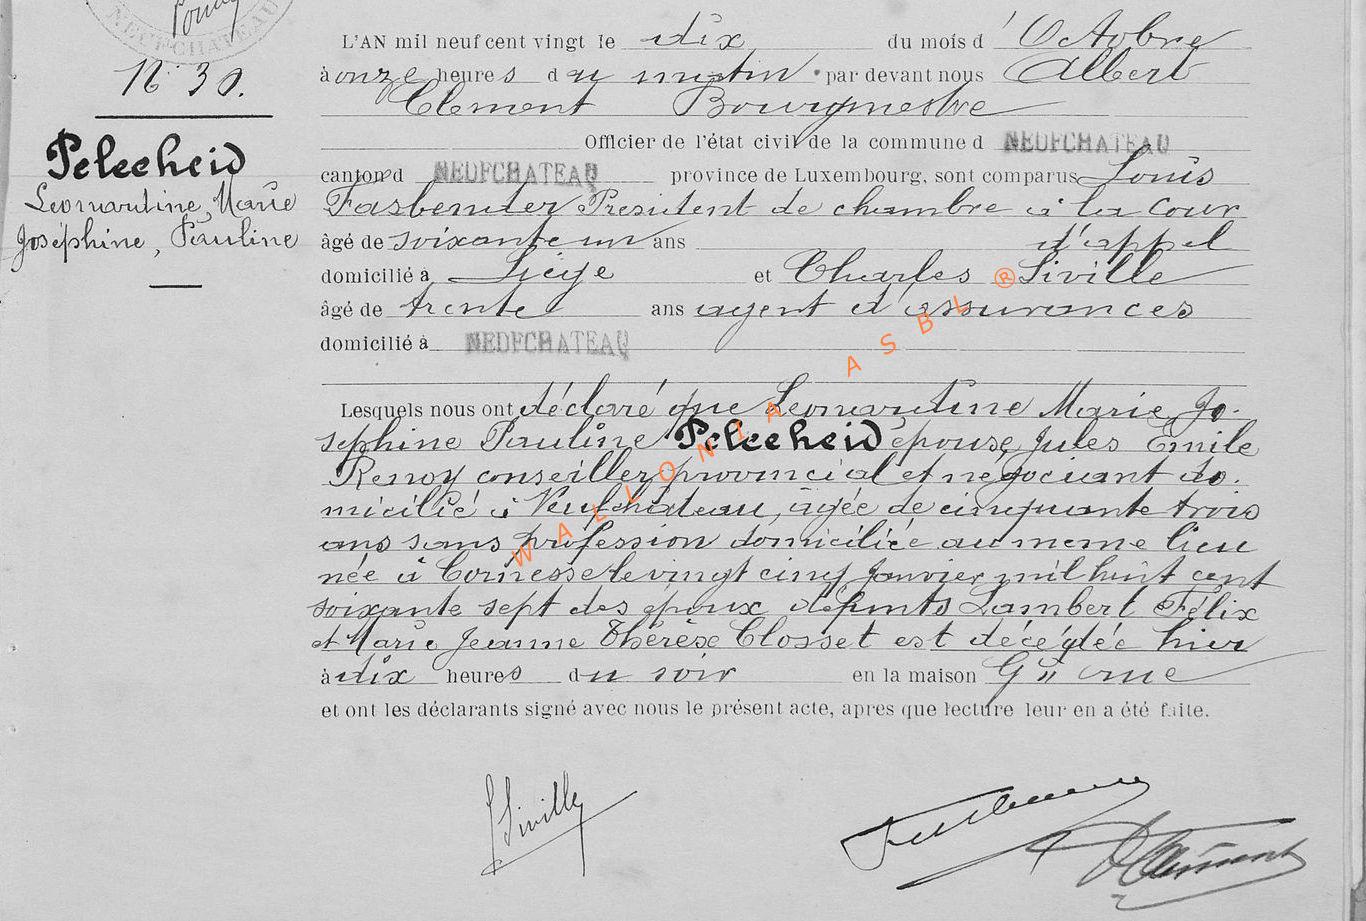 NEUFCHATEAU
N° 30.
Pelecheid
Leonardine, Marie
Joséphine, Pauline
L'AN mil neuf cent vingt le dix du mois d'Octobre
à onze heures du matin par devant nous Albert
Clement Bourgmestre
Officier de l'état civil de la commune d NEUFCHATEAU
canton d NEUFCHATEAU province de Luxembourg, sont comparus Louis
Fasbender Président de chambre à la Cour
âgé de soixante un ans d'appel
domicilié à Liége et Charles Siville
âgé de trente ans agent d'assurances
domicilié à NEUFCHATEAU
Lesquels nous ont déclaré que Leonardine Marie Jo-
sephine Pauline Pelecheid épouse Jules Emile
Renoy conseiller provincial et négociant do-
micilié à Neufchâteau, agée de cinquante trois
ans sans profession domiciliée au meme lieu
née à Cornesse le vingt cinq Janvier mil huit cent
soixante sept des époux défunts Lambert Félix
et Marie Jeanne Thérèse Closset est décédée hier
à dix heures du soir en la maison rue
et ont les déclarants signé avec nous le présent acte, apres que lecture leur en a été faite.
Siville
Clement
WALLONIA ASBL ®